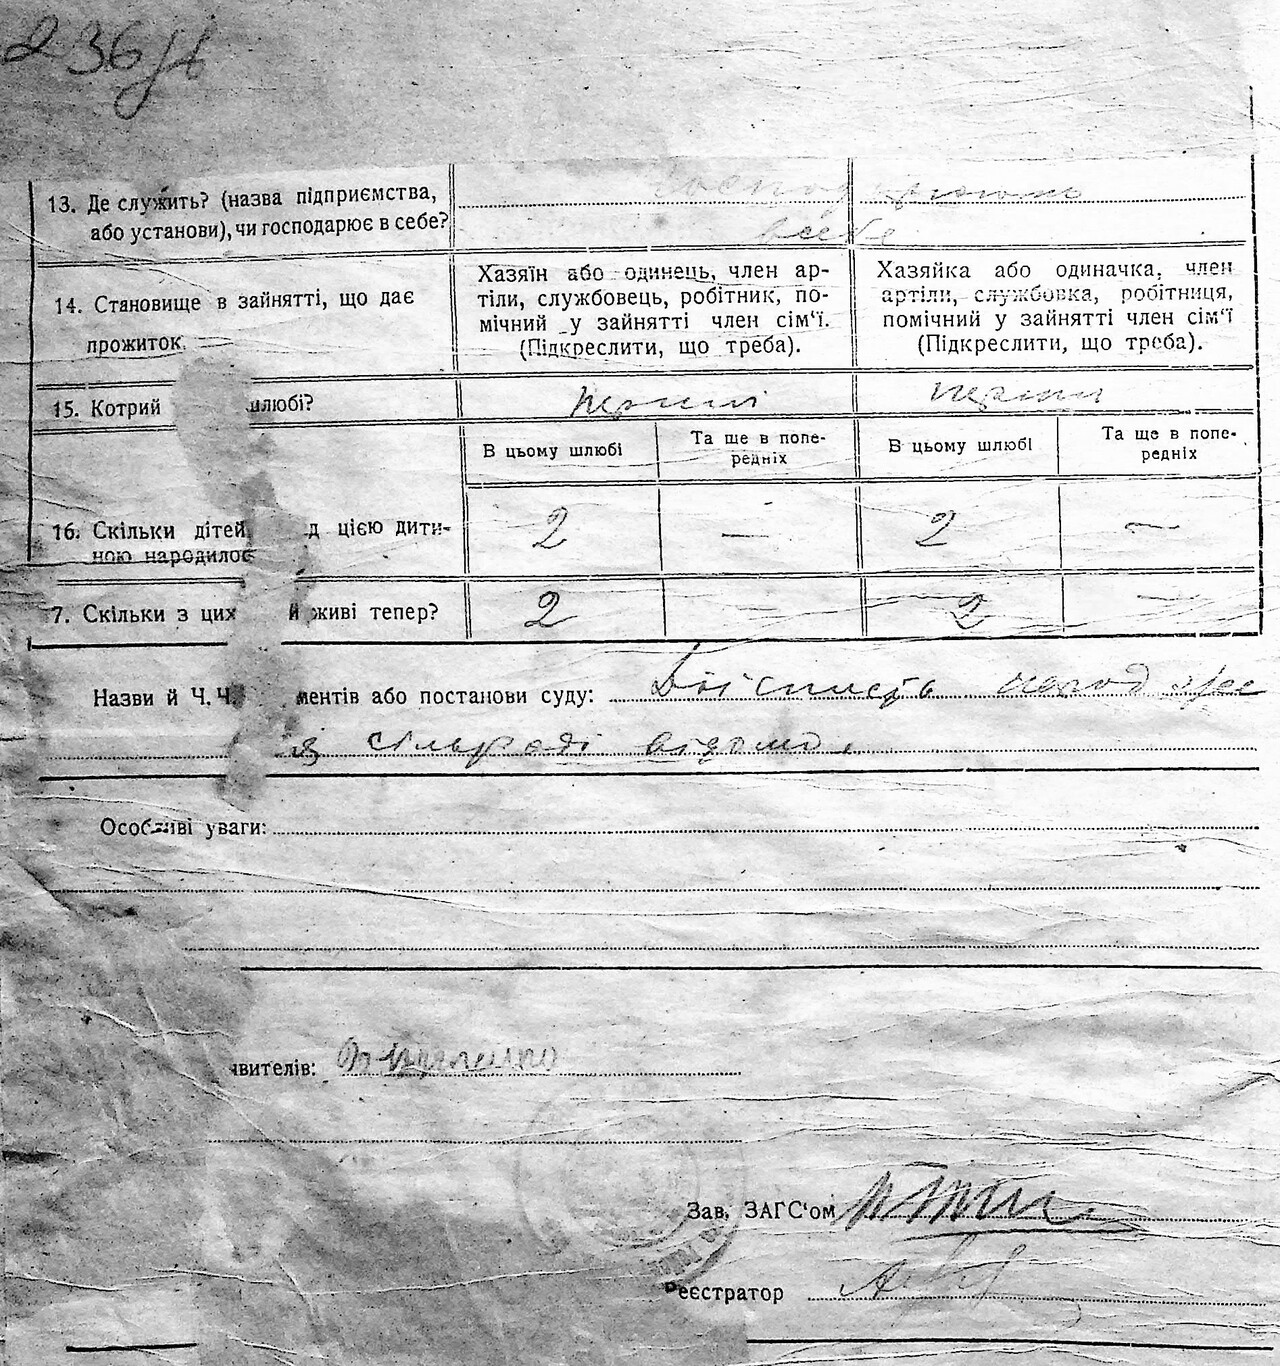 236
13. Де служить? (назва підприємства,
або установи), чи господарює в себе?
господарюють
в себе
14. Становище в зайнятті, що дає
прожиток.
Хазяїн або одинець, член ар-
тіли, службовець, робітник, по-
мічний у зайнятті член сім'ї.
(Підкреслити, що треба).
Хазяйка або одиначка, член
артіли, службовка, робітниця,
помічний у зайнятті член сім'ї
(Підкреслити, що треба).
15. Котрий шлюбі?
перший перший
В цьому шлюбі
Та ще в попе-
редніх
В цьому шлюбі
Та ще в попе-
редніх
16. Скільки дітей д цією дити-
ною народилос
2 — 2 —
7. Скільки з цих й живі тепер?
2 — 2 —
Назви й Ч. Ч. ментів або постанови суду: Дійсність народ
сільраді відомо.
Особливі уваги:
явителів:
Зав. ЗАГС'ом
Реєстратор